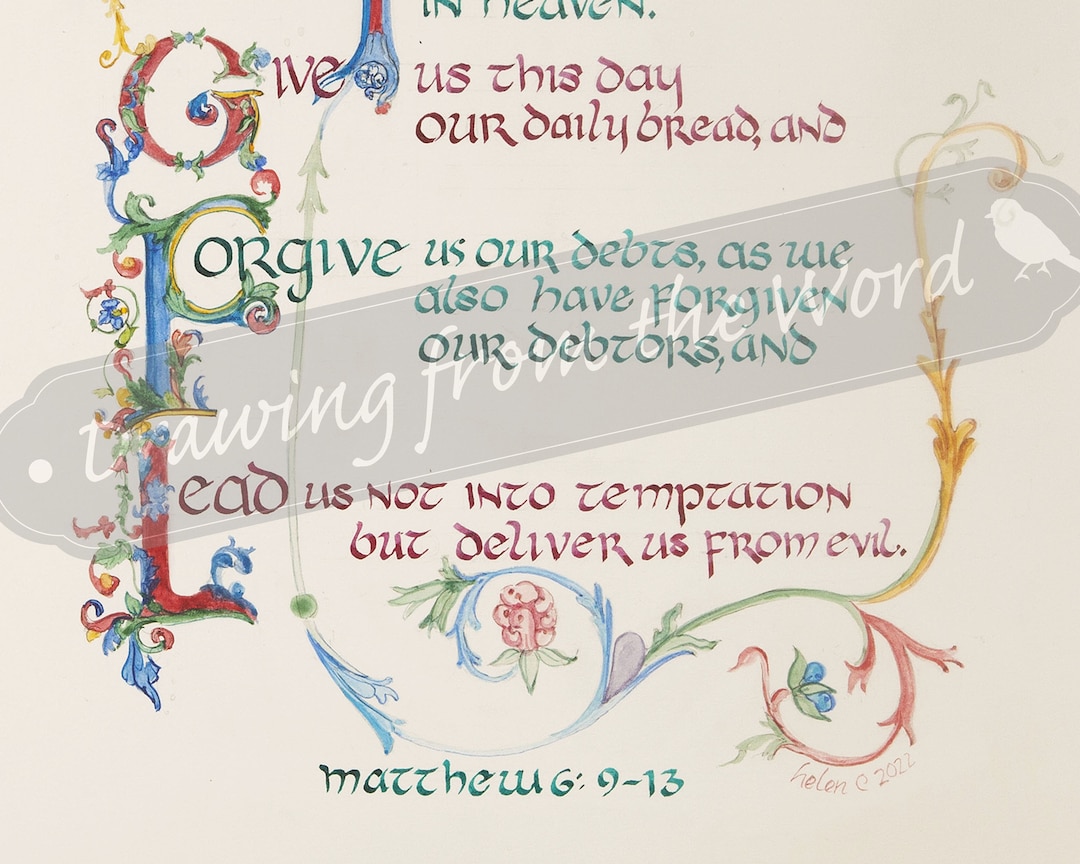 in heaven.
Give us this day
our daily bread, and
Forgive us our debts, as we
also have forgiven
our debtors, and
Drawing from the Word
Lead us not into temptation
but deliver us from evil.
Matthew 6: 9-13
helen © 2022